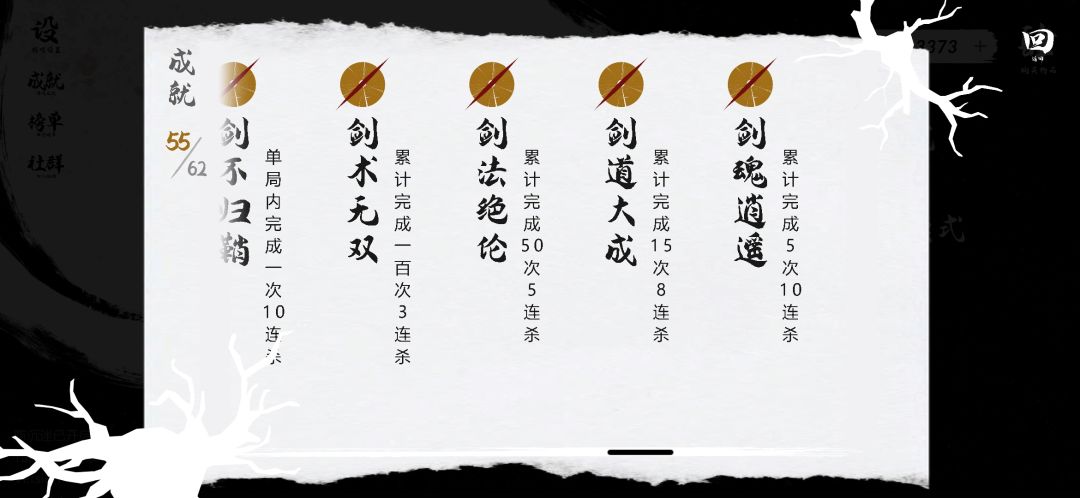 设
成就
榜单
社群
成就
55/62
剑不归鞘
单局内完成一次10连杀
剑术无双
累计完成一百次3连杀
剑法绝伦
累计完成50次5连杀
剑道大成
累计完成15次8连杀
剑魂逍遥
累计完成5次10连杀
3373 +
回
式